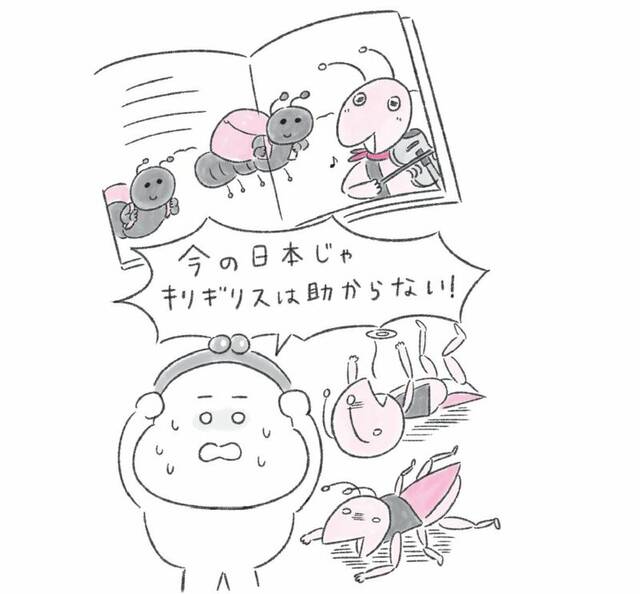 今の日本じゃ
キリギリスは助からない!
♪